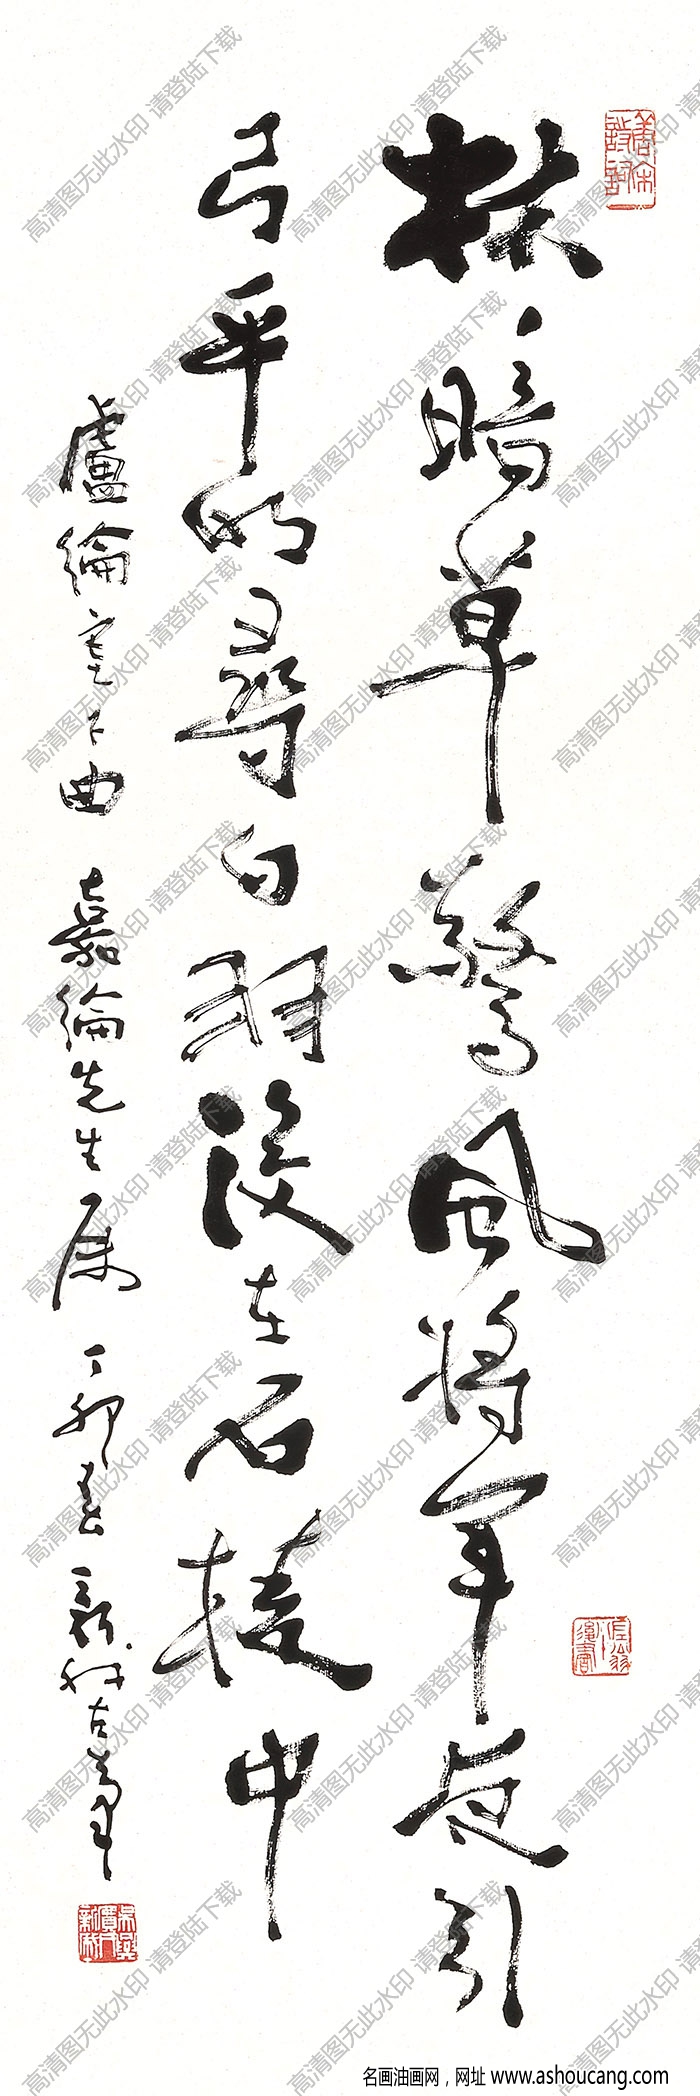 林暗草驚風將軍夜引
弓平明尋白羽沒在石棱中
盧綸塞下曲 嘉綸先生屬 丁卯春 新我左筆
高清图无此水印 请登陆下载
名画油画网，网址 www.ashoucang.com